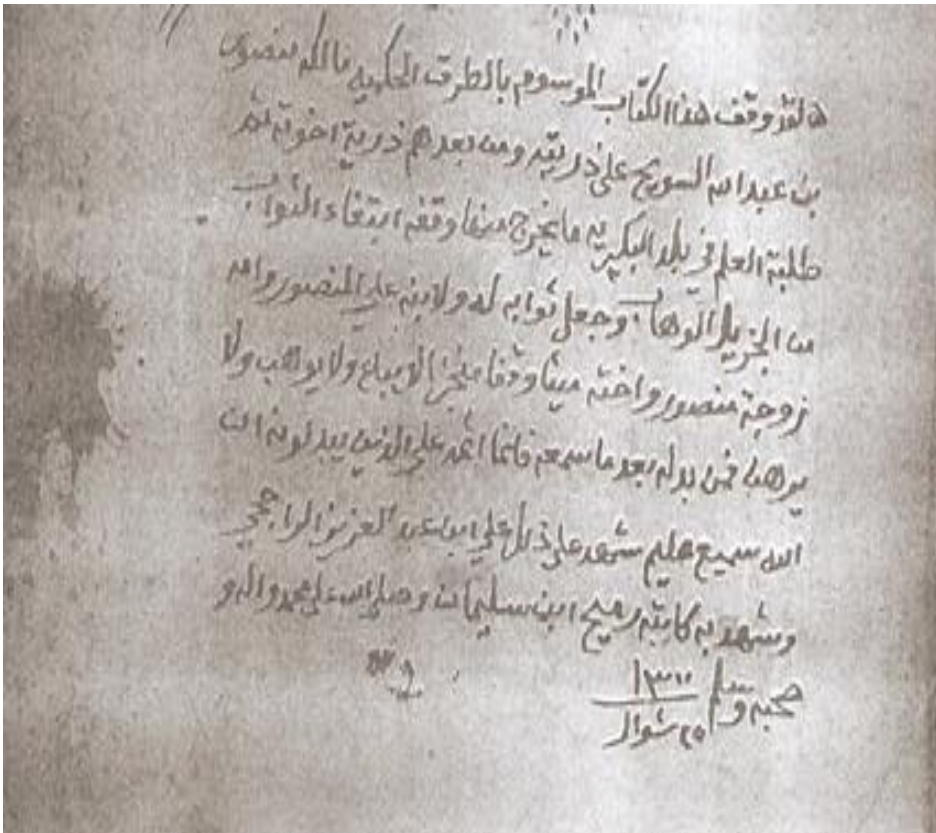 لقد وقف هذا الكتاب الموسوم بالطرق الحكمية مالكه منصور
بن عبدالله السويح على ذريته ومن بعدهم ذرية اخوته ثم
طلبة العلم في بلد البكيريه ما يخرج منها وقفه ابتغاء الثواب
من الجزيل الوهاب وجعل ثوابه له ولابنه علي المنصور وامه
زوجة منصور واخته وقفا منجزا لا يباع ولا يوهب ولا
يرهن فمن بدله بعد ما سمعه فانما اثمه على الذين يبدلونه ان
الله سميع عليم شهد على ذلك علي ابن عبد العزيز الراجحي
وشهد به كاتبه رميح ابن سليمان وصلى الله على محمد واله و
صحبه وسلم ١٣ شوال